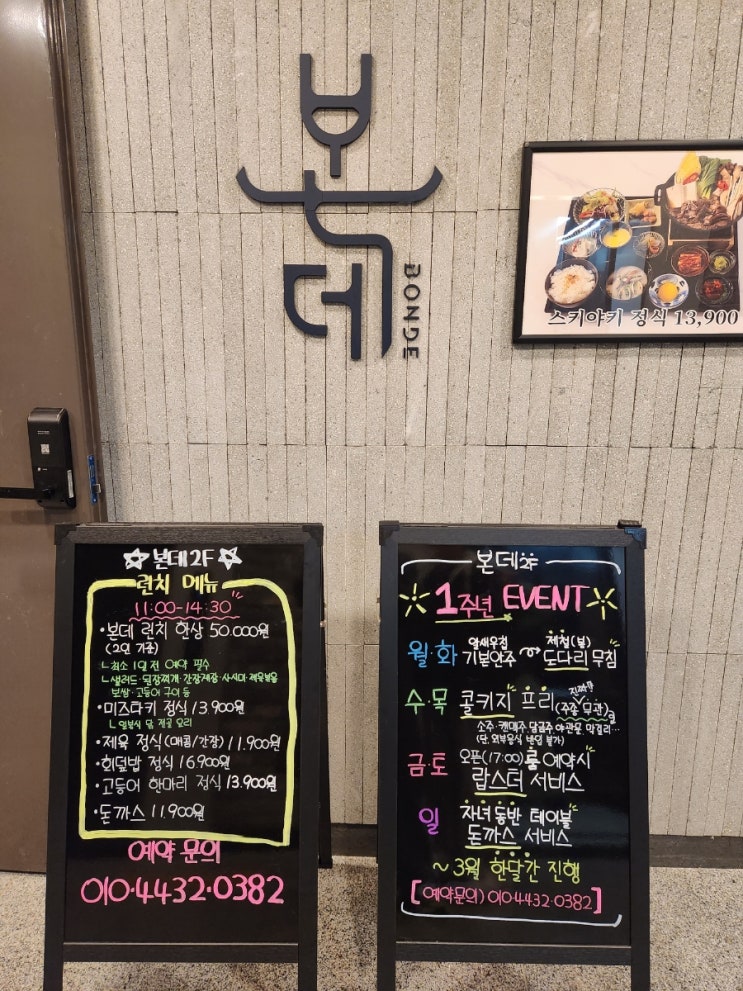 본데
BONDE
스키야키 정식 13,900
☆본데2F☆
런치 메뉴
11:00-14:30
·본데 런치 한상 50.000원
(2인 기준)
ㄴ최소 1일 전 예약 필수
ㄴ샐러드·된장찌개·간장게장·사시미·제육볶음
보쌈·고등어 구이 등
·미즈타키 정식 13.900원
ㄴ일본식 닭 전골 요리
·제육 정식(매콤/간장) 11.900원
·회덮밥 정식 16.900원
·고등어 한마리 정식 13.900원
·돈까스 11.900원
예약 문의
010·4432·0382
본데2F
1주년 EVENT
월·화 알새우칩 기본안주 → 제철(봄) 도다리 무침
수·목 콜키지 프리 진짜!! (주종 무관)
소주·캔맥주·담금주·야관문 막걸리...
(단, 외부음식 반입 불가)
금·토 오픈(17:00)룸 예약시
랍스터 서비스
일 자녀 동반 테이블
돈까스 서비스
~3월 한달간 진행
[예약문의) 010·4432·0382]